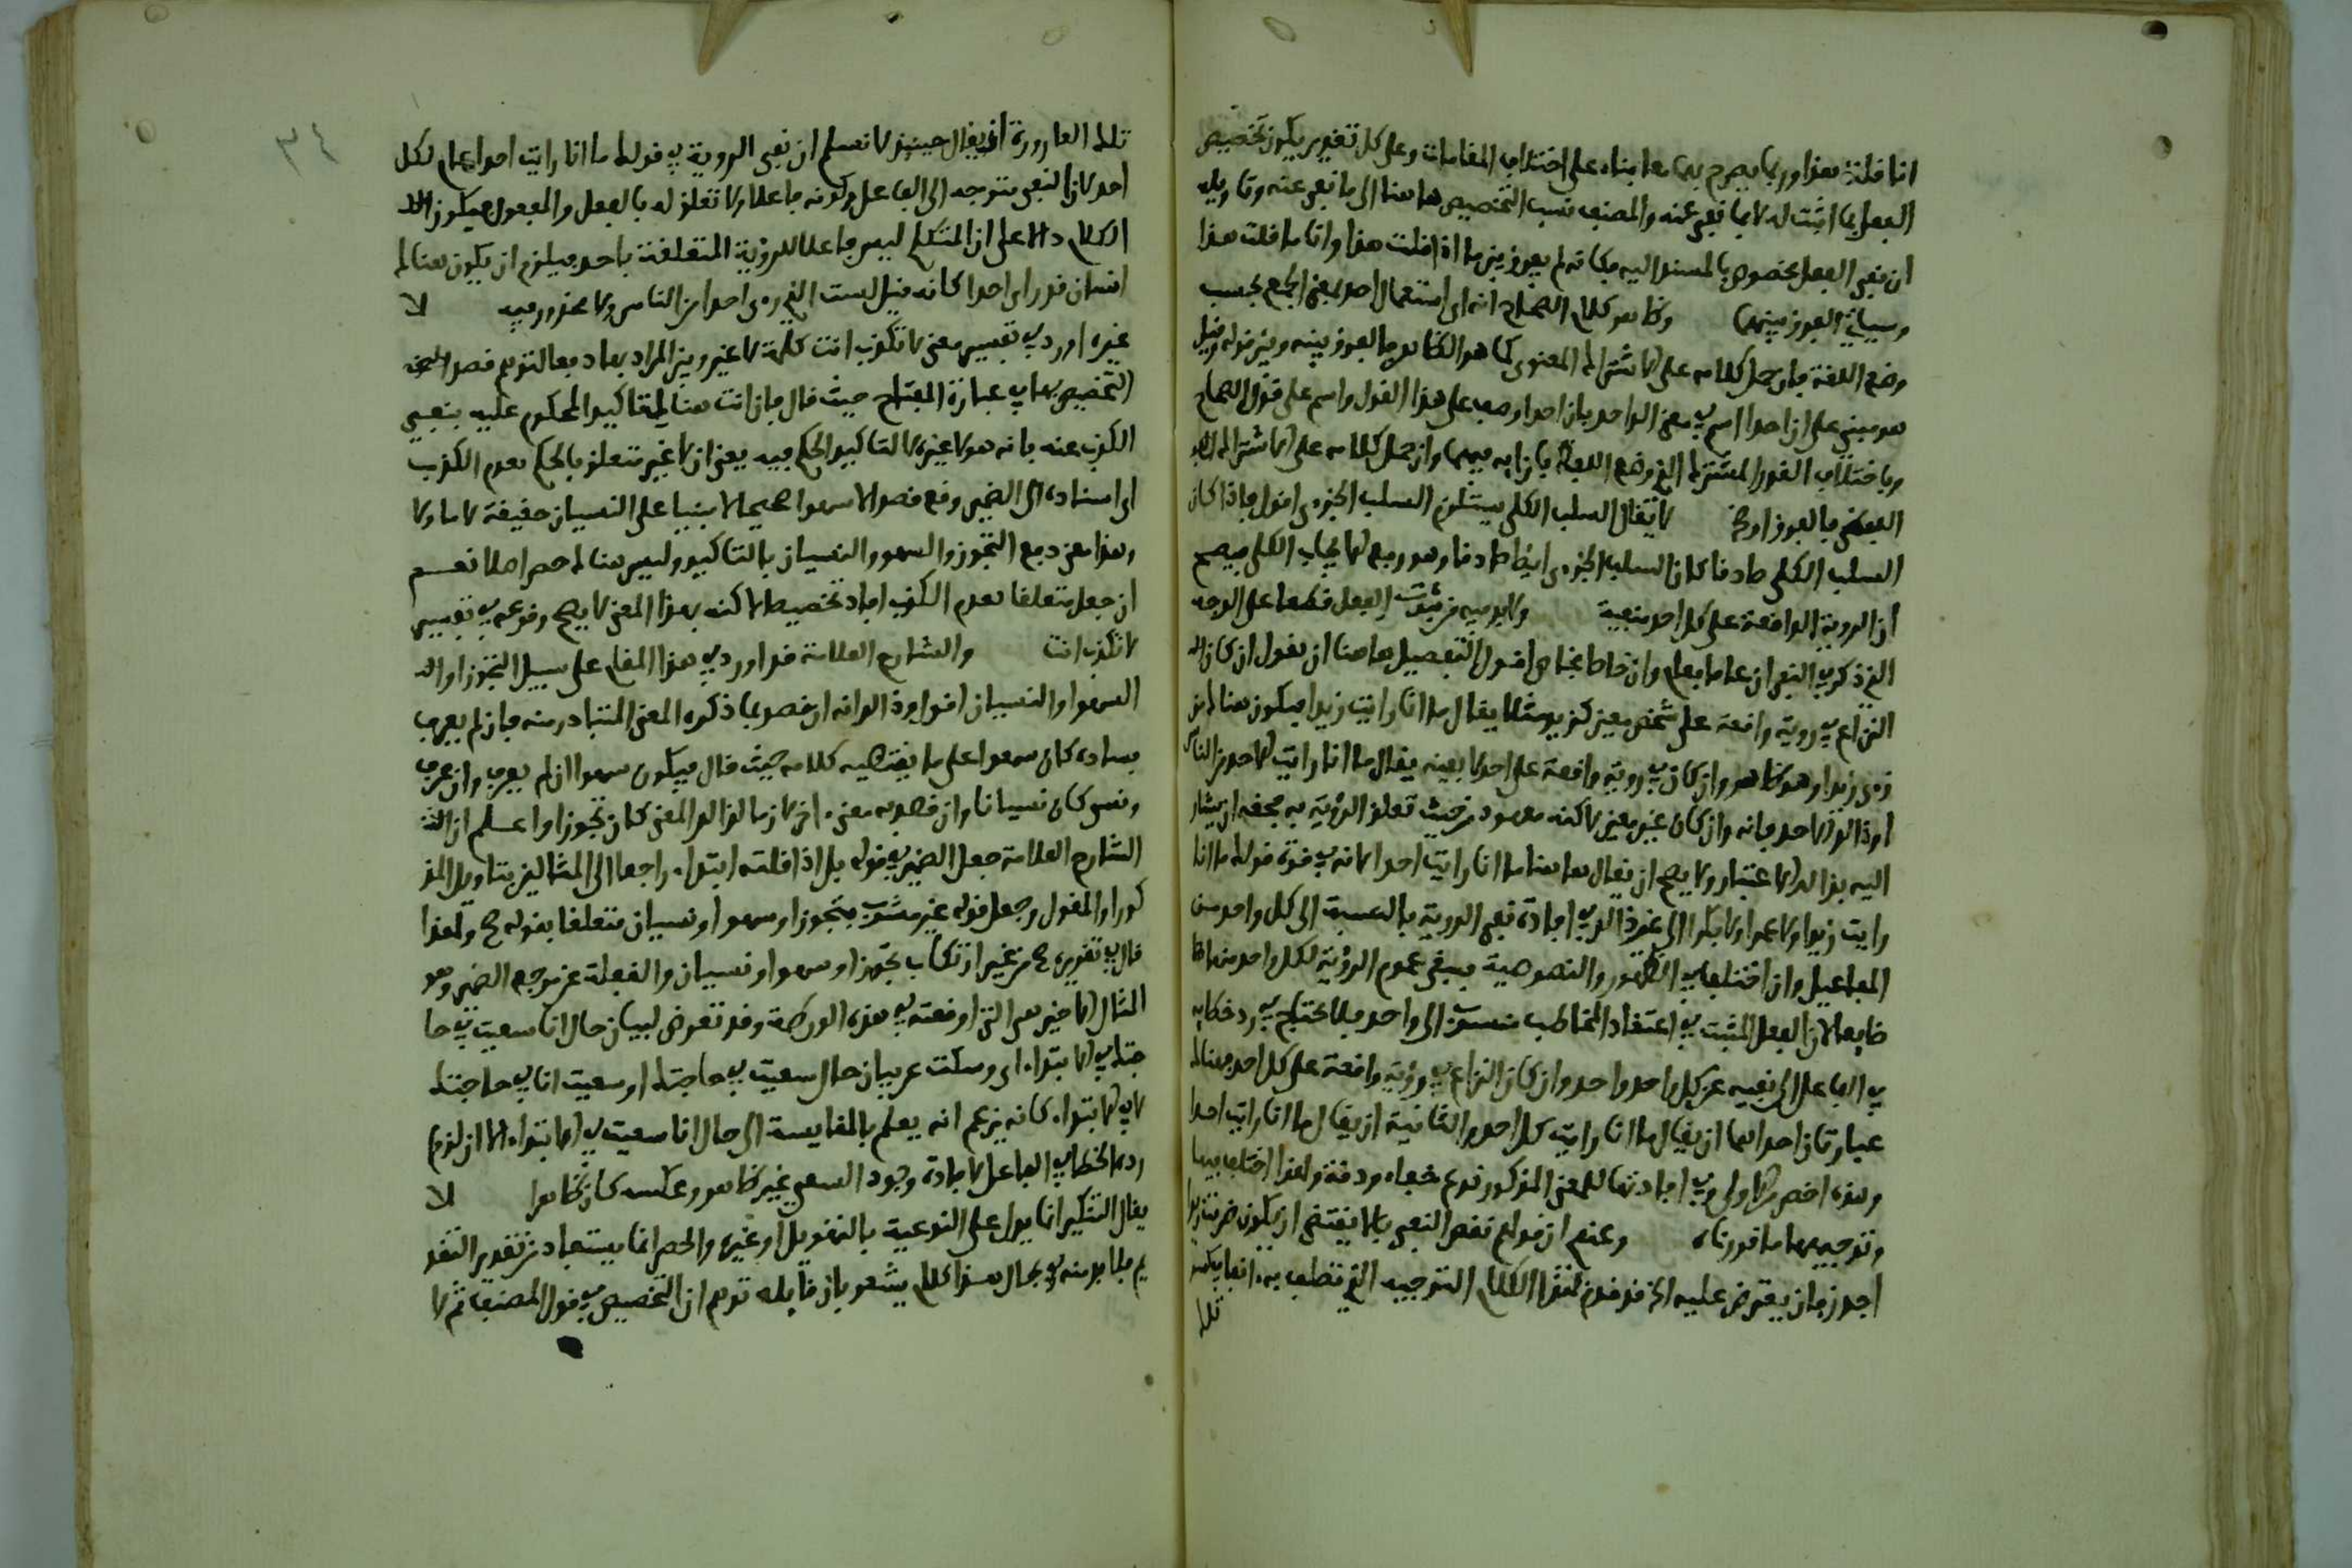 انا قلت هذا وربما يصرح بهما معا بناء على اختلاف المقامات وعلى كل تقدير يكون تخصيص
الفعل بما اثبت له لا بما نفي عنه والمصنف نسب التخصيص هاهنا الى ما نفي عنه وتاويله
ان نفي الفعل مخصوص بالمسند اليه فكانه لم يفرق بين ما اذا قلت هذا وانا ما قلت هذا
وسياتي الفرق بينهما وظاهر كلام الصحاح انه اي استعمال احد بمعنى الجمع بحسب
وضع اللغة فان حمل كلامه على الاشتراك المعنوي كما هو الظاهر فالفرق بينه وبين قوله وقيل
هو مبني على ان احدا اسم في معنى الواحد بان احدا وصف على هذا القول واسم على قول الصحاح
وباختلاف القدر المشترك الذي وضع اللفظ بازايه فيهما وان حمل كلامه على الاشتراك
اللفظي فالفرق اوضح لا يقال السلب الكلي يستلزم السلب الجزءي اقول فاذا كان
السلب الكلي صادقا كان السلب الجزءي ايضا صادقا وهو رفع الايجاب الكلي فيصح
ان الروية الواقعة على كل احد منفية ولا بد فيه من ثبوت الفعل قطعا على الوجه
الذي ذكر في النفي ان عاما فعام وان خاصا فخاص اقول التفصيل هاهنا ان نقول ان كان
النزاع في روية واقعة على شخص معين كزيد مثلا يقال ما انا رايت زيدا فيكون هناك من
رءى زيدا وهو ظاهر وان كان في روية واقعة على احد لا بعينه يقال ما انا رايت الاحد من الناس
او ذلك الاحد فانه وان كان غير معين لاكنه معهود من حيث تعلق الروية به فحقه ان يشار
اليه بذلك الاعتبار ولا يصح ان يقال هاهنا ما انا رايت احدا لانه في قوة قولك ما انا
رايت زيدا ولا عمرا ولا بكرا الى غير ذلك في افادة نفي الروية بالنسبة الى كل واحد من
المفاعيل وان اختلفا في الظهور والنصوصية فيبقى عموم الروية لكل واحد منها
ضايعا لان الفعل المثبت في اعتقاد المخاطب منسوب الى واحد فلا يحتاج في رد خطايه
في الفاعل الى نفيه عن كل واحد واحد وان كان النزاع في روية واقعة على كل احد فهناك
عبارتان احداهما ان يقال ما انا رايت كل احد والثانية ان يقال ما انا رايت احدا
وهذه اخصر من الاولى وفي افادتها للمعنى المذكور نوع خفاء ودقة ولهذا اختلف فيها
وتوجيهها ما قررناه وعندي ان قولهم نقض النفي بالا يقتضي ان يكون ضربت زيدا
اجدر بان يعترض عليه الخ قد قدم لهذا الكلام التوجيه الذي تطلف به انفا يمكنه
تلك
٣٤
تلك العارورة ان يقال حينيذ لا نسلم ان نفي الروية في قولك ما انا رايت احدا عام لكل
احد لان النفي متوجه الى الفاعل وكونه فاعلا ولا تعلق له بالفعل والمفعول فيكون
الكلام دالا على ان المتكلم ليس فاعلا للروية المتعلقة باحد فيلزم ان يكون هناك
انسان قد راى احدا كانه قيل لست الذي رءى احدا من الناس ولا محذور فيه لا
غيره اورد في تفسير معنى لا تكذب انت كلمة لا غير وبين المراد بها دفعا لتوهم قصد
التخصيص بها في عبارة المفتاح حيث قال فان انت هناك لتاكيد المحكوم عليه بنفي
الكذب عنه بانه هو لا غيره لا لتاكيد الحكم فيه يعني ان لا غير متعلق بالحكم بعدم الكذب
اي اسناده الى الضمير وقع قصدا لا سهوا صحيحا لا مبنيا على النسيان حقيقة لا مساولا
وهذا معنى دفع التجوز والسهو والنسيان بالتاكيد وليس هناك حصر اصلا نعم
ان جعل متعلقا بعدم الكذب افاد تخصيصا لاكنه بهذا المعنى لا يصح وقوعه في تفسير
لا تكذب انت والشارح العلامة قد اورد في هذا المقام على سبيل التجوز او
السهو او النسيان اقول وذلك انه ان قصد بما ذكره المعنى المتبادر منه فان لم يعرف
فساده كان سهوا على ما يقتضيه كلامه حيث قال فيكون سهوا ان لم يعرف وان عرف
ونسي كان نسيانا وان قصد به معنى اخر لازما لذلك المعنى كان تجوزا واعلم ان
الشارح العلامة جعل الضمير في قوله بل اذا قلته ابتداء راجعا الى المثالين بتاويل المذ
كور او المقول وجعل قوله غير مشوب بتجوز او سهو او نسيان متعلقا بقوله صح ولهذا
قال في تقريره صح من غير ارتكاب تجوز او سهو او نسيان والغفلة عن مرجع الضمير وهو
المثال الاخير هي التي اوقعته في هذه الورطة وقد تعرض لبيان حال انا سعيت في حا
جتك في الابتداء اي وسكت عن بيان حال سعيت في حاجتك او سعيت انا في حاجتك
لا في الابتداء كانه يزعم انه يعلم بالمقايسة الى حال انا سعيت في الابتداء الا ان لزوم
رد الخطا في الفاعل لافادة وجود السعي غير ظاهر وعكسه كان ظاهرا لا
يقال التنكير انما يدل على النوعية بالتهويل او غيره والحصر انما يستفاد من تقدير التقد
يم فلا بد منه في مجال هذا كلام يشعر بان قايله توهم ان التخصيص في قول المصنف ثم لا